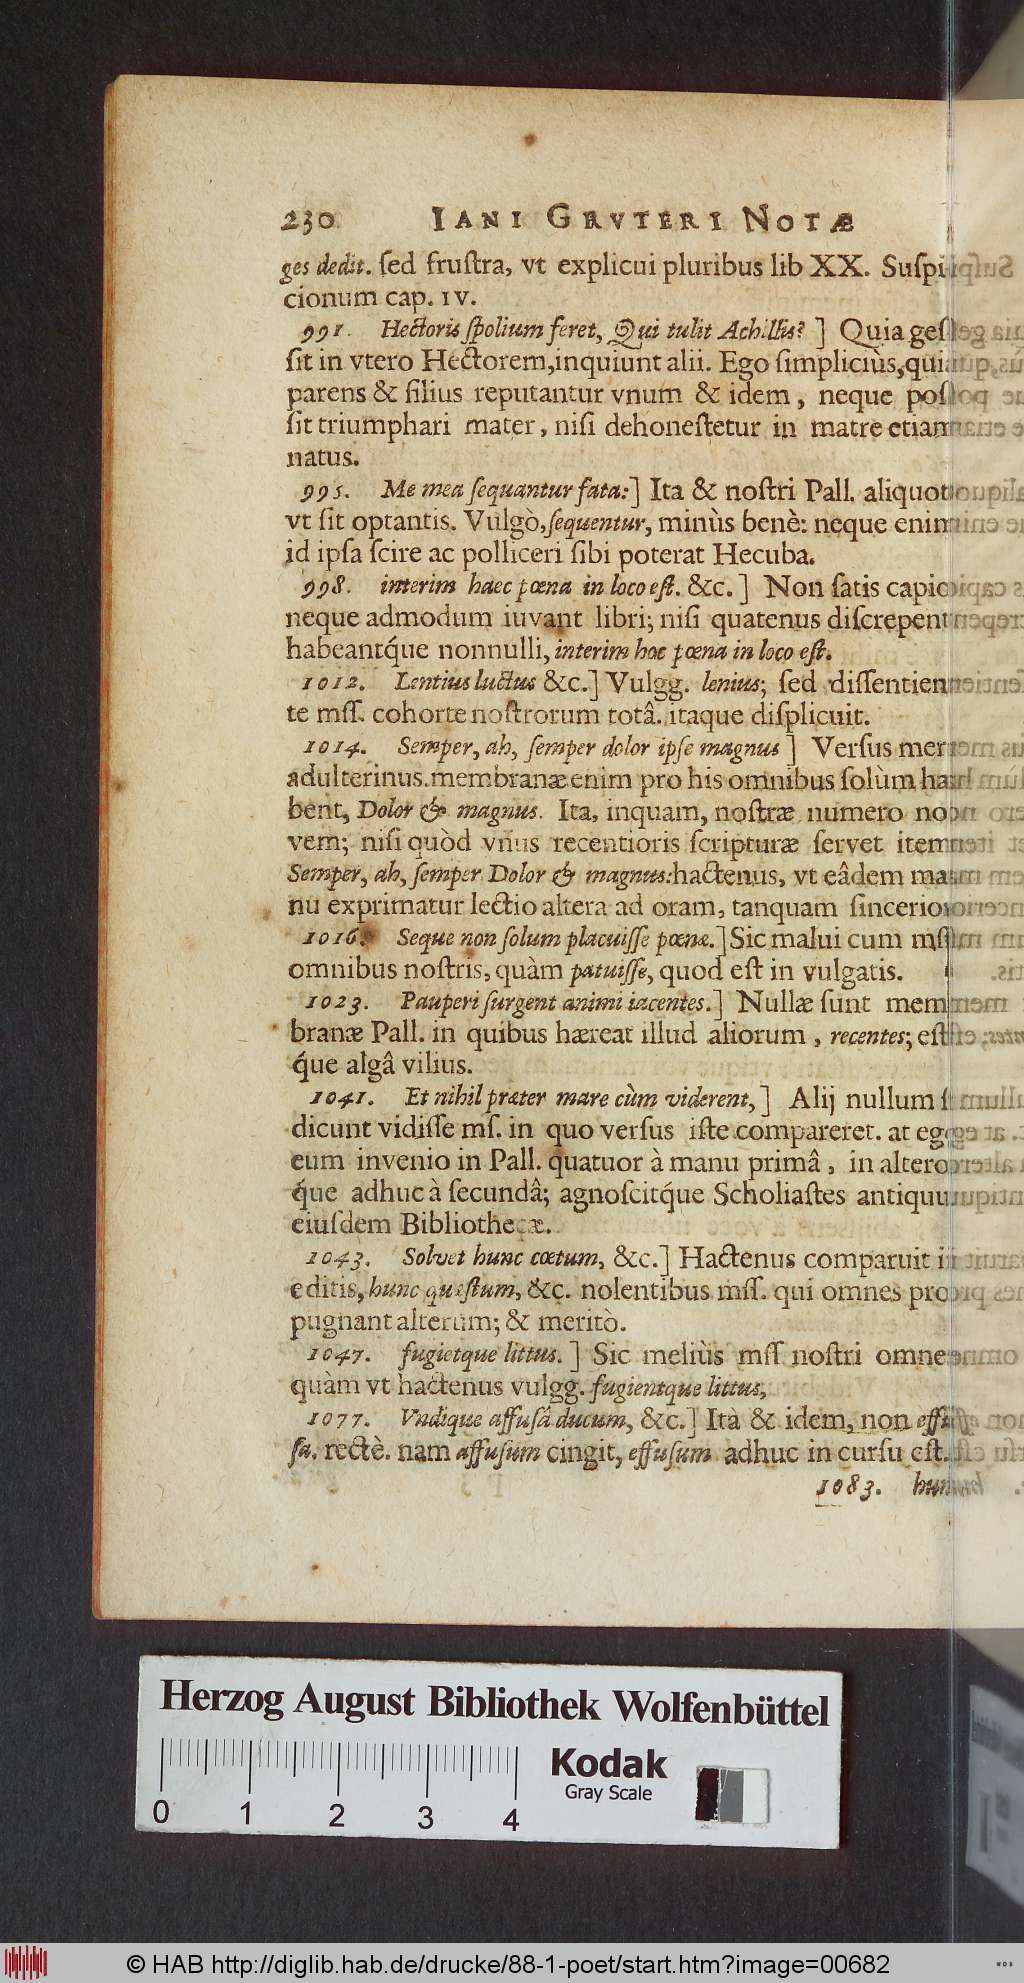 230 IANI GRVTERI NOTÆ
ges dedit. ſed fruſtra, vt explicui pluribus lib XX. Suſpi
cionum cap. IV.
991. Hectoris ſpolium feret, Qui tulit Achillis? ] Quia geſ
ſit in vtero Hectorem, inquiunt alii. Ego ſimpliciùs, quia
parens & filius reputantur vnum & idem, neque poſ
ſit triumphari mater, niſi dehoneſtetur in matre etiam
natus.
995. Me mea ſequantur fata:] Ita & noſtri Pall. aliquot
vt ſit optantis. Vulgò, ſequentur, minùs benè: neque enim
id ipſa ſcire ac polliceri ſibi poterat Hecuba.
998. interim haec pœna in loco eſt. &c. ] Non ſatis capio
neque admodum iuvant libri; niſi quatenus diſcrepent
habeantq́ue nonnulli, interim hoc pœna in loco eſt.
1012. Lentius luctus &c.] Vulgg. lenius; ſed diſſentien
te mſſ. cohorte noſtrorum totâ. itaque diſplicuit.
1014. Semper, ah, ſemper dolor ipſe magnus ] Verſus mer
adulterinus. membranæ enim pro his omnibus ſolùm ha
bent, Dolor & magnus. Ita, inquam, noſtræ numero no
vem; niſi quòd vnus recentioris ſcripturæ ſervet item
Semper, ah, ſemper Dolor & magnus: hactenus, vt eâdem ma
nu exprimatur lectio altera ad oram, tanquam ſincerior
1016. Seque non ſolum placuiſſe pœnæ.] Sic malui cum mſſ
omnibus noſtris, quàm patuiſſe, quod eſt in vulgatis.
1023. Pauperi ſurgent animi iacentes.] Nullæ ſunt mem
branæ Pall. in quibus hæreat illud aliorum, recentes; eſt
q́ue algâ vilius.
1041. Et nihil præter mare cùm viderent, ] Alij nullum ſ
dicunt vidiſſe mſ. in quo verſus iſte compareret. at eg
eum invenio in Pall. quatuor à manu primâ, in altero
q́ue adhuc à ſecundâ; agnoſcitq́ue Scholiaſtes antiquu
eiuſdem Bibliothecæ.
1043. Solvet hunc cœtum, &c.] Hactenus comparuit i
editis, hunc quæſtum, &c. nolentibus mſſ. qui omnes pro
pugnant alterum; & meritò.
1047. fugietque littus. ] Sic meliùs mſſ noſtri omne
quàm vt hactenus vulgg. fugientque littus,
1077. Vndique affuſâ ducum, &c.] Ità & idem, non effu
ſa. rectè. nam affuſum cingit, effuſum adhuc in curſu eſt.
1083. hunc
Herzog August Bibliothek Wolfenbüttel
Kodak
Gray Scale
0 1 2 3 4
© HAB http://diglib.hab.de/drucke/88-1-poet/start.htm?image=00682